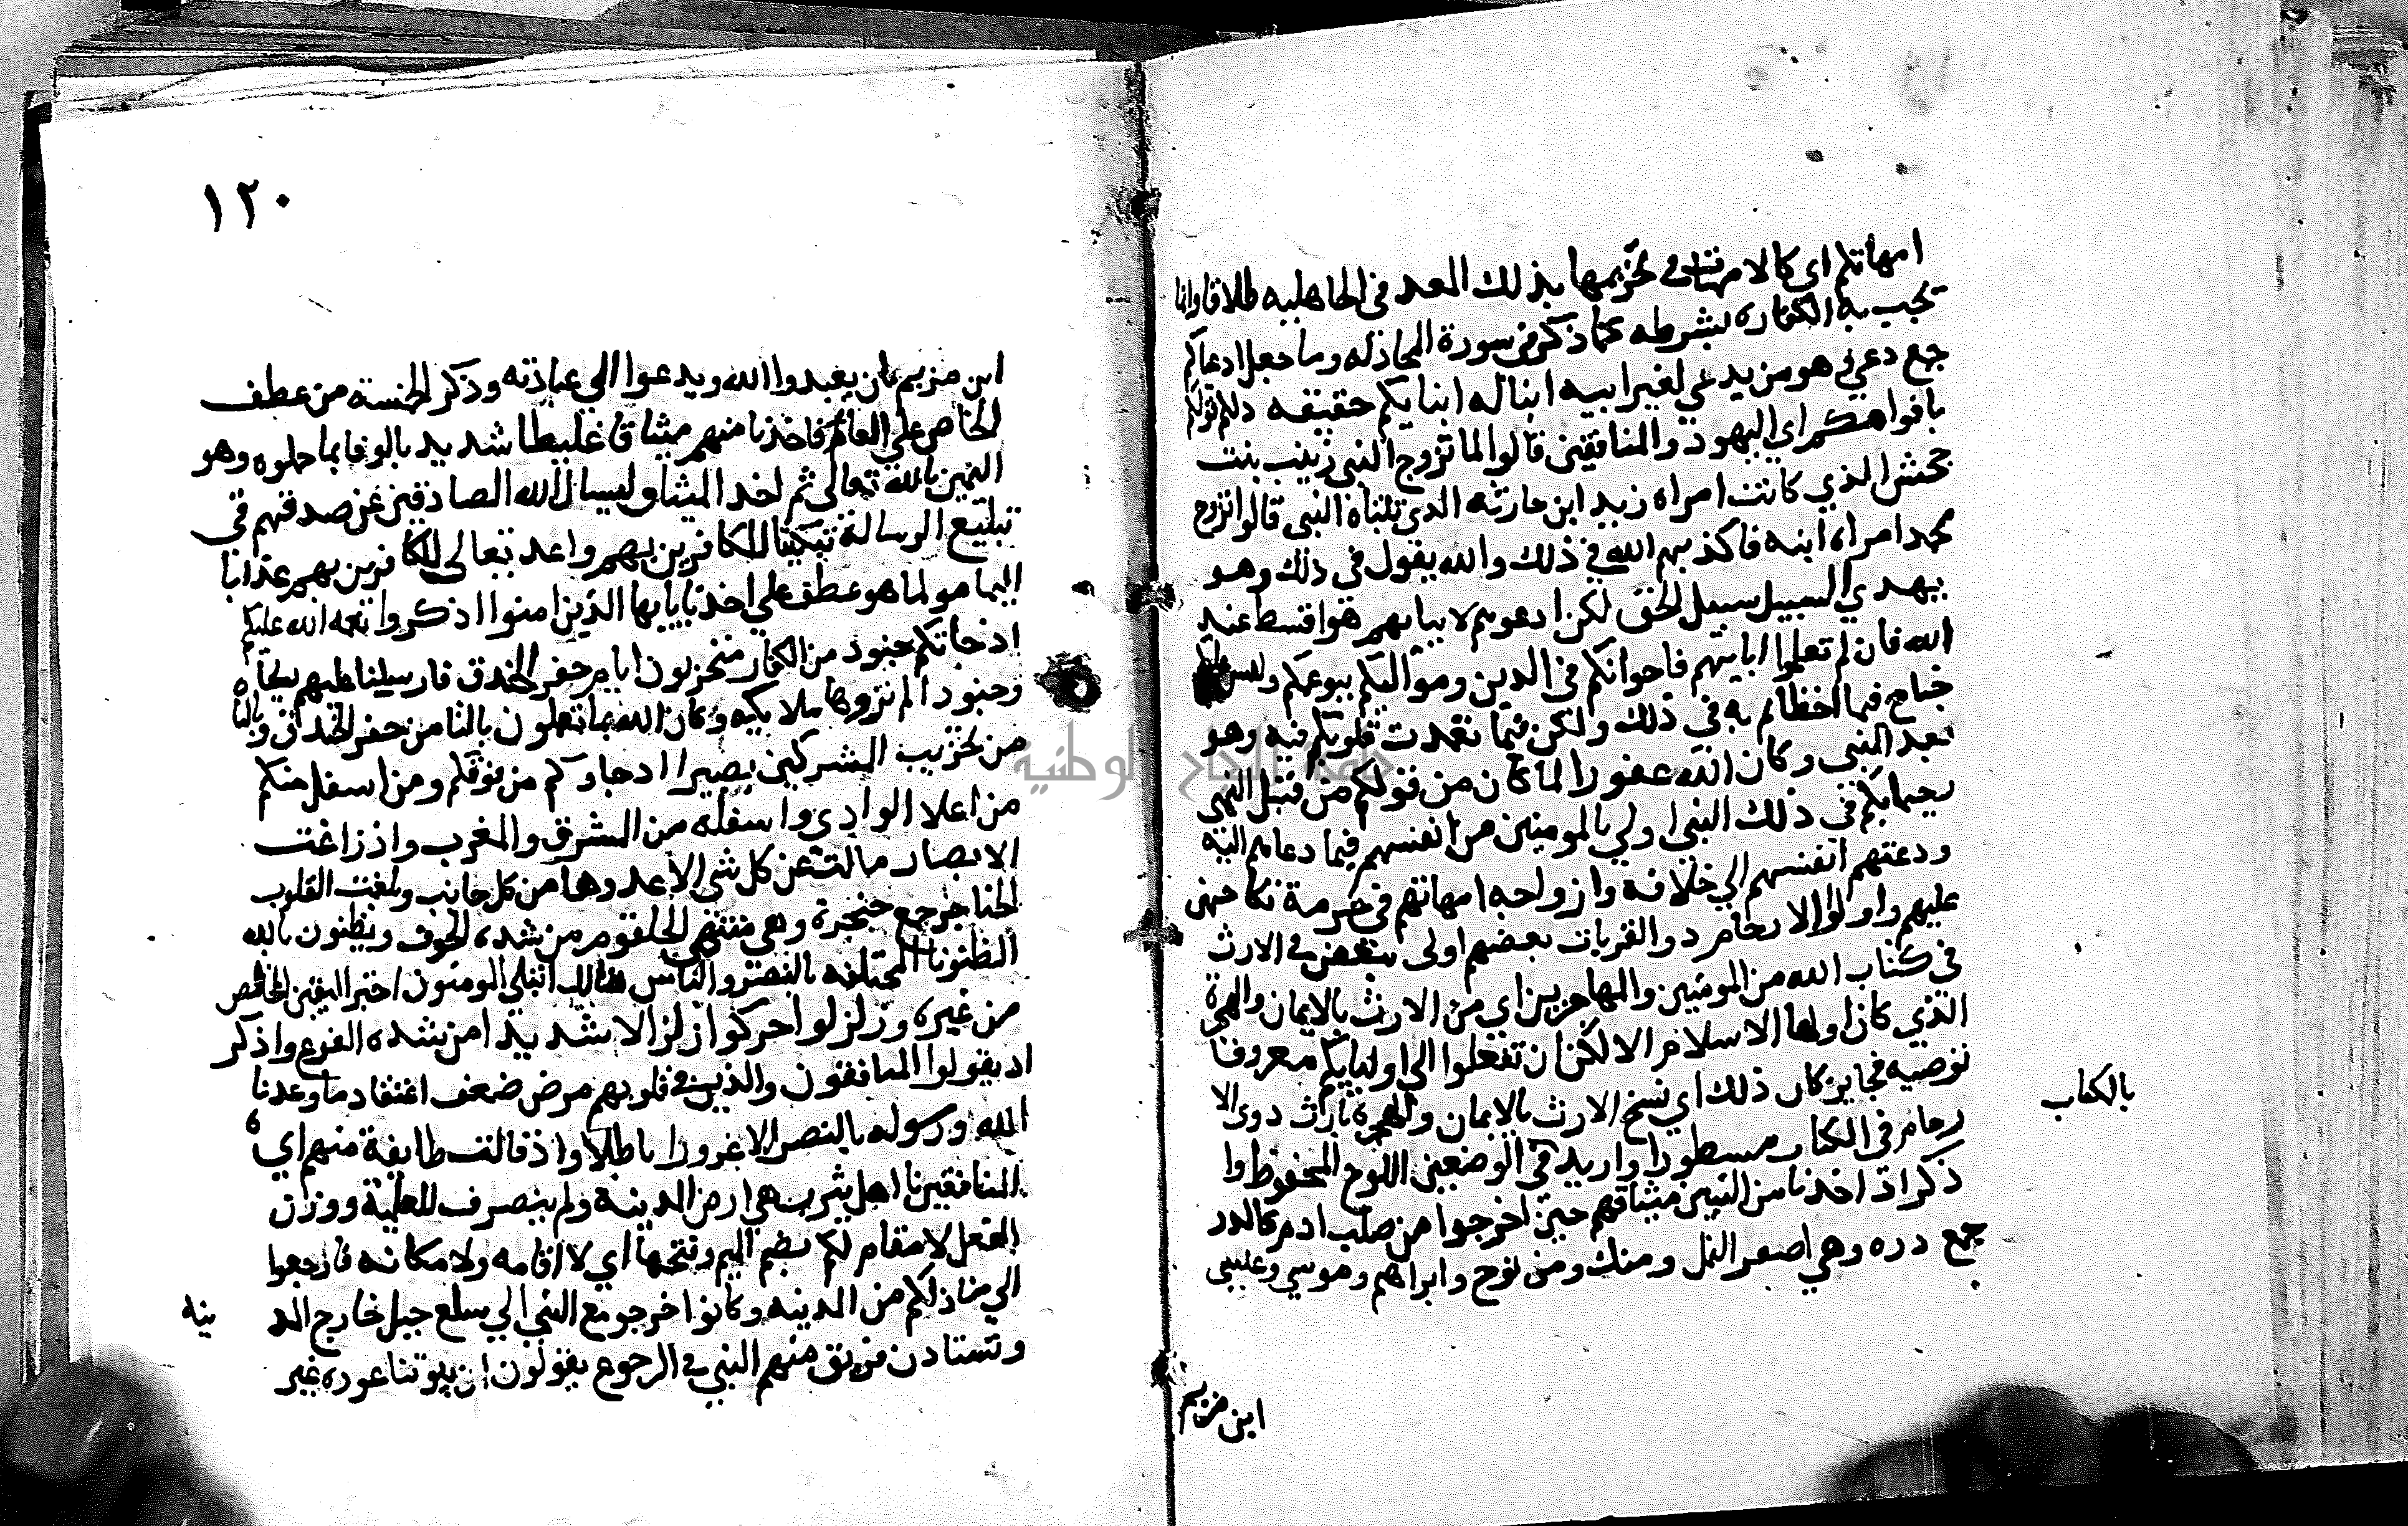 امهاتكم اي كالامهات في تحريمها بذلك المعد في الجاهليه طلاقا وانما
تجب به الكفاره بشرطه كما ذكر في سورة المجادله وما جعل ادعياكم
جمع دعي هو من يدعي لغير ابيه ابنا له ابنايكم حقيقه ذلكم قولكم
بافواهكم اي اليهود والمنافقين قالوا لما تزوج النبي زينب بنت
جحش الذي كانت امراه زيد ابن حارثه الذي تبناه النبي قالوا تزوج
محمد امراه ابنه فاكذبهم الله في ذلك والله يقول في ذلك وهو
يهدي السبيل سبيل الحق لكن ادعوهم لابيايهم هو اقسط عند
الله فان لم تعلموا ابايهم فاخوانكم في الدين ومواليكم بنوعمكم وليس عليكم
جناح فيما اخطاتم به في ذلك ولكن فيما تعمدت قلوبكم فيه وهو
بعد النهي وكان الله غفورا لما كان من قولكم من قبل النهي
رحيما بكم في ذلك النبي اولي بالمومنين من انفسهم فيما دعاهم اليه
ودعتهم انفسهم الي خلافه وازواجه امهاتهم في حرمة نكاحهن
عليهم واولوا الارحام ذو القربات بعضهم اولى ببعض في الارث
في كتاب الله من المومنين والمهاجرين اي من الارث بالايمان والهجرة
الذي كان اولها الاسلام الا لكن ان تفعلوا الي اوليايكم معروفا
توصيه فجايز كان ذلك اي نسخ الارث بالايمان والهجرة بارث دوي الا
رحام في الكتاب مسطورا واريد في الوضعين اللوح المحفوظ وا
بالكتاب
ذكر اذ اخذنا من النبيين ميثاقهم حين اخرجوا من صلب ادم كالدر
جمع دره وهي اصغر النمل ومنك ومن نوح وابراهم وموسي وعيسي
ابن مريم
١٢٠
ابن مريم بان يعبدوا الله ويدعوا الي عبادته وذكر الخمسة من عطف
الخاص علي العام فاخذنا منهم ميثاقا غليظا شديد بالوفا بما حملوه وهو
اليمين بالله تعالى ثم اخذ الميثاق ليسال الله الصادقين عن صدقهم في
تبليع الرسالة تبكيتا للكافرين بهم واعد تعالى للكافرين بهم عذابا
اليما مولما هو عطف علي اخذنا يايها الذين امنوا اذكروا نعمه الله عليكم
اذ جاتكم جنود من الكفار متحزبون ايام حفر الخندق فارسلنا عليهم ريحا
وجنودا لم تروها ملايكه وكان الله بما تعملون بالتا من حفر الخندق وباليا
من تحزيب المشركين بصيرا اد جاوكم من فوقكم ومن اسفل منكم
من اعلا الوادي واسفله من المشرق والمغرب واذ زاغت
الابصار مالت عن كل شي الا عدوها من كل جانب وبلغت القلوب
الحناجر جمع حنجرة وهي منتهي الحلقوم من شده الخوف ويظنون بالله
الظنونا المختلفه بالنصر والناس هنالك ابتلي المومنون اختبر اليقين الخالص
من غيره وزلزلوا حركوا زلزالا شديدا من شده الفزع واذكر
اد يقولوا المنافقون والذين في قلوبهم مرض ضعف اعتقاد ما وعدنا
الله ورسوله بالنصر الا غرورا باطلا واذ قالت طايفة منهم اي
المنافقين يا اهل يثرب هي ارض المدينه ولم ينصرف للعلمية ووزن
الفعل لا مقام لكم بضم الميم وفتحها اي لا اقامه ولا مكانه فارجعوا
الي منازلكم من المدينه وكانوا خرجو مع النبي الي سلع جبل خارج المد
ينه
وتستادن فريق منهم النبي في الرجوع يقولون ان بيوتنا عوره غير
جامعة النجاح الوطنية